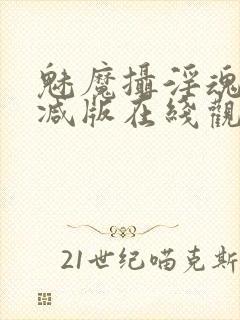 魅魔攝淫魂
减版在綫觀
21世纪喵克斯